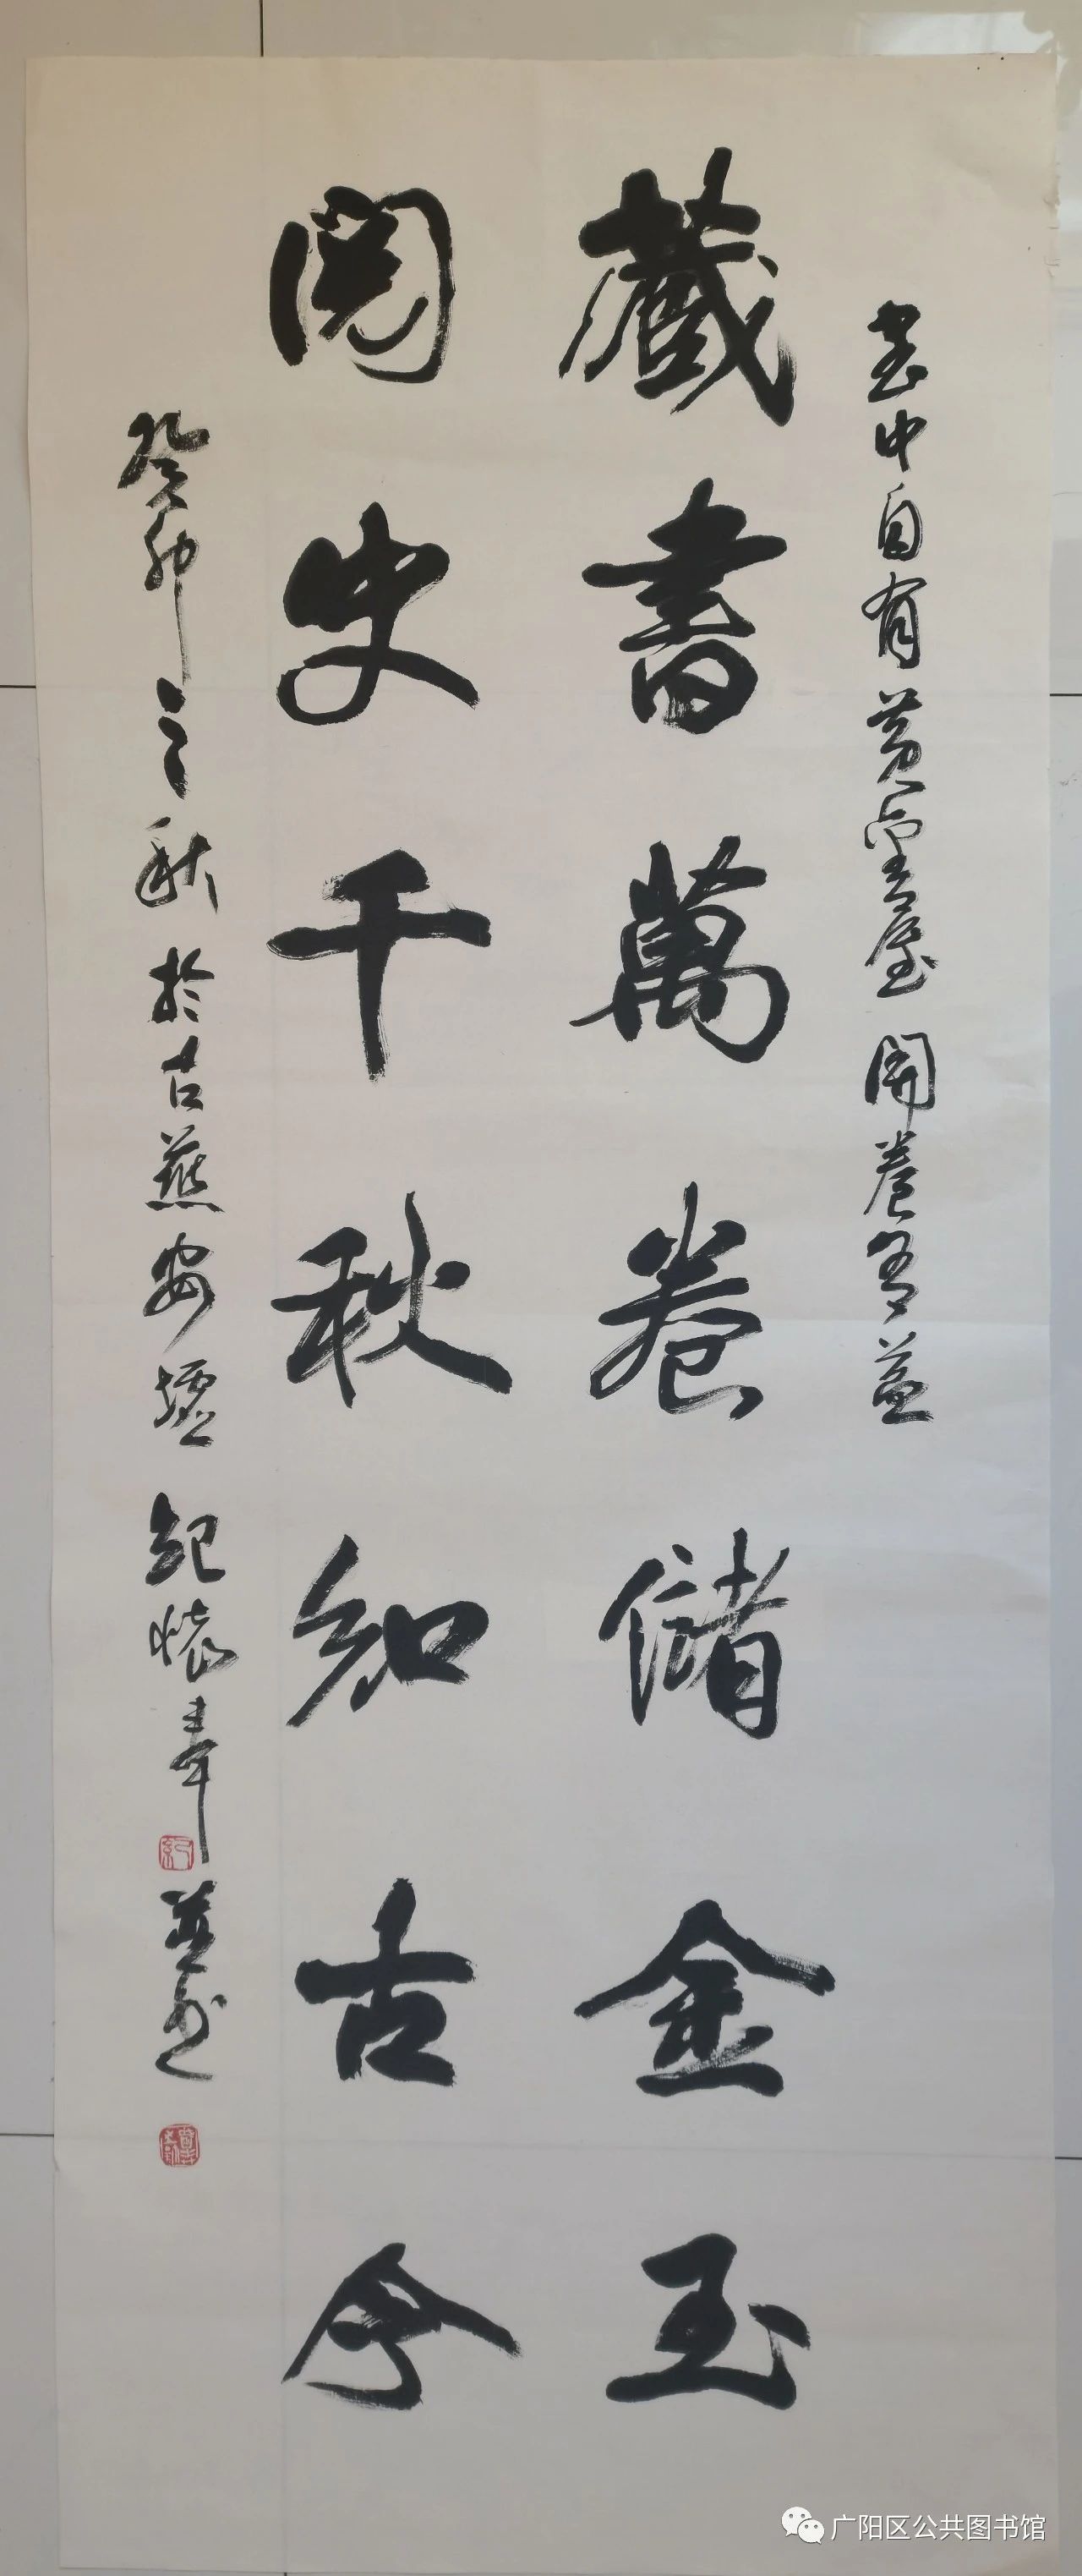 書中自有黄金屋 開卷有益
藏書萬卷儲金玉
閱史千秋知古今
癸卯之秋於古燕安墟 紀懷奉並題
紀
广阳区公共图书馆